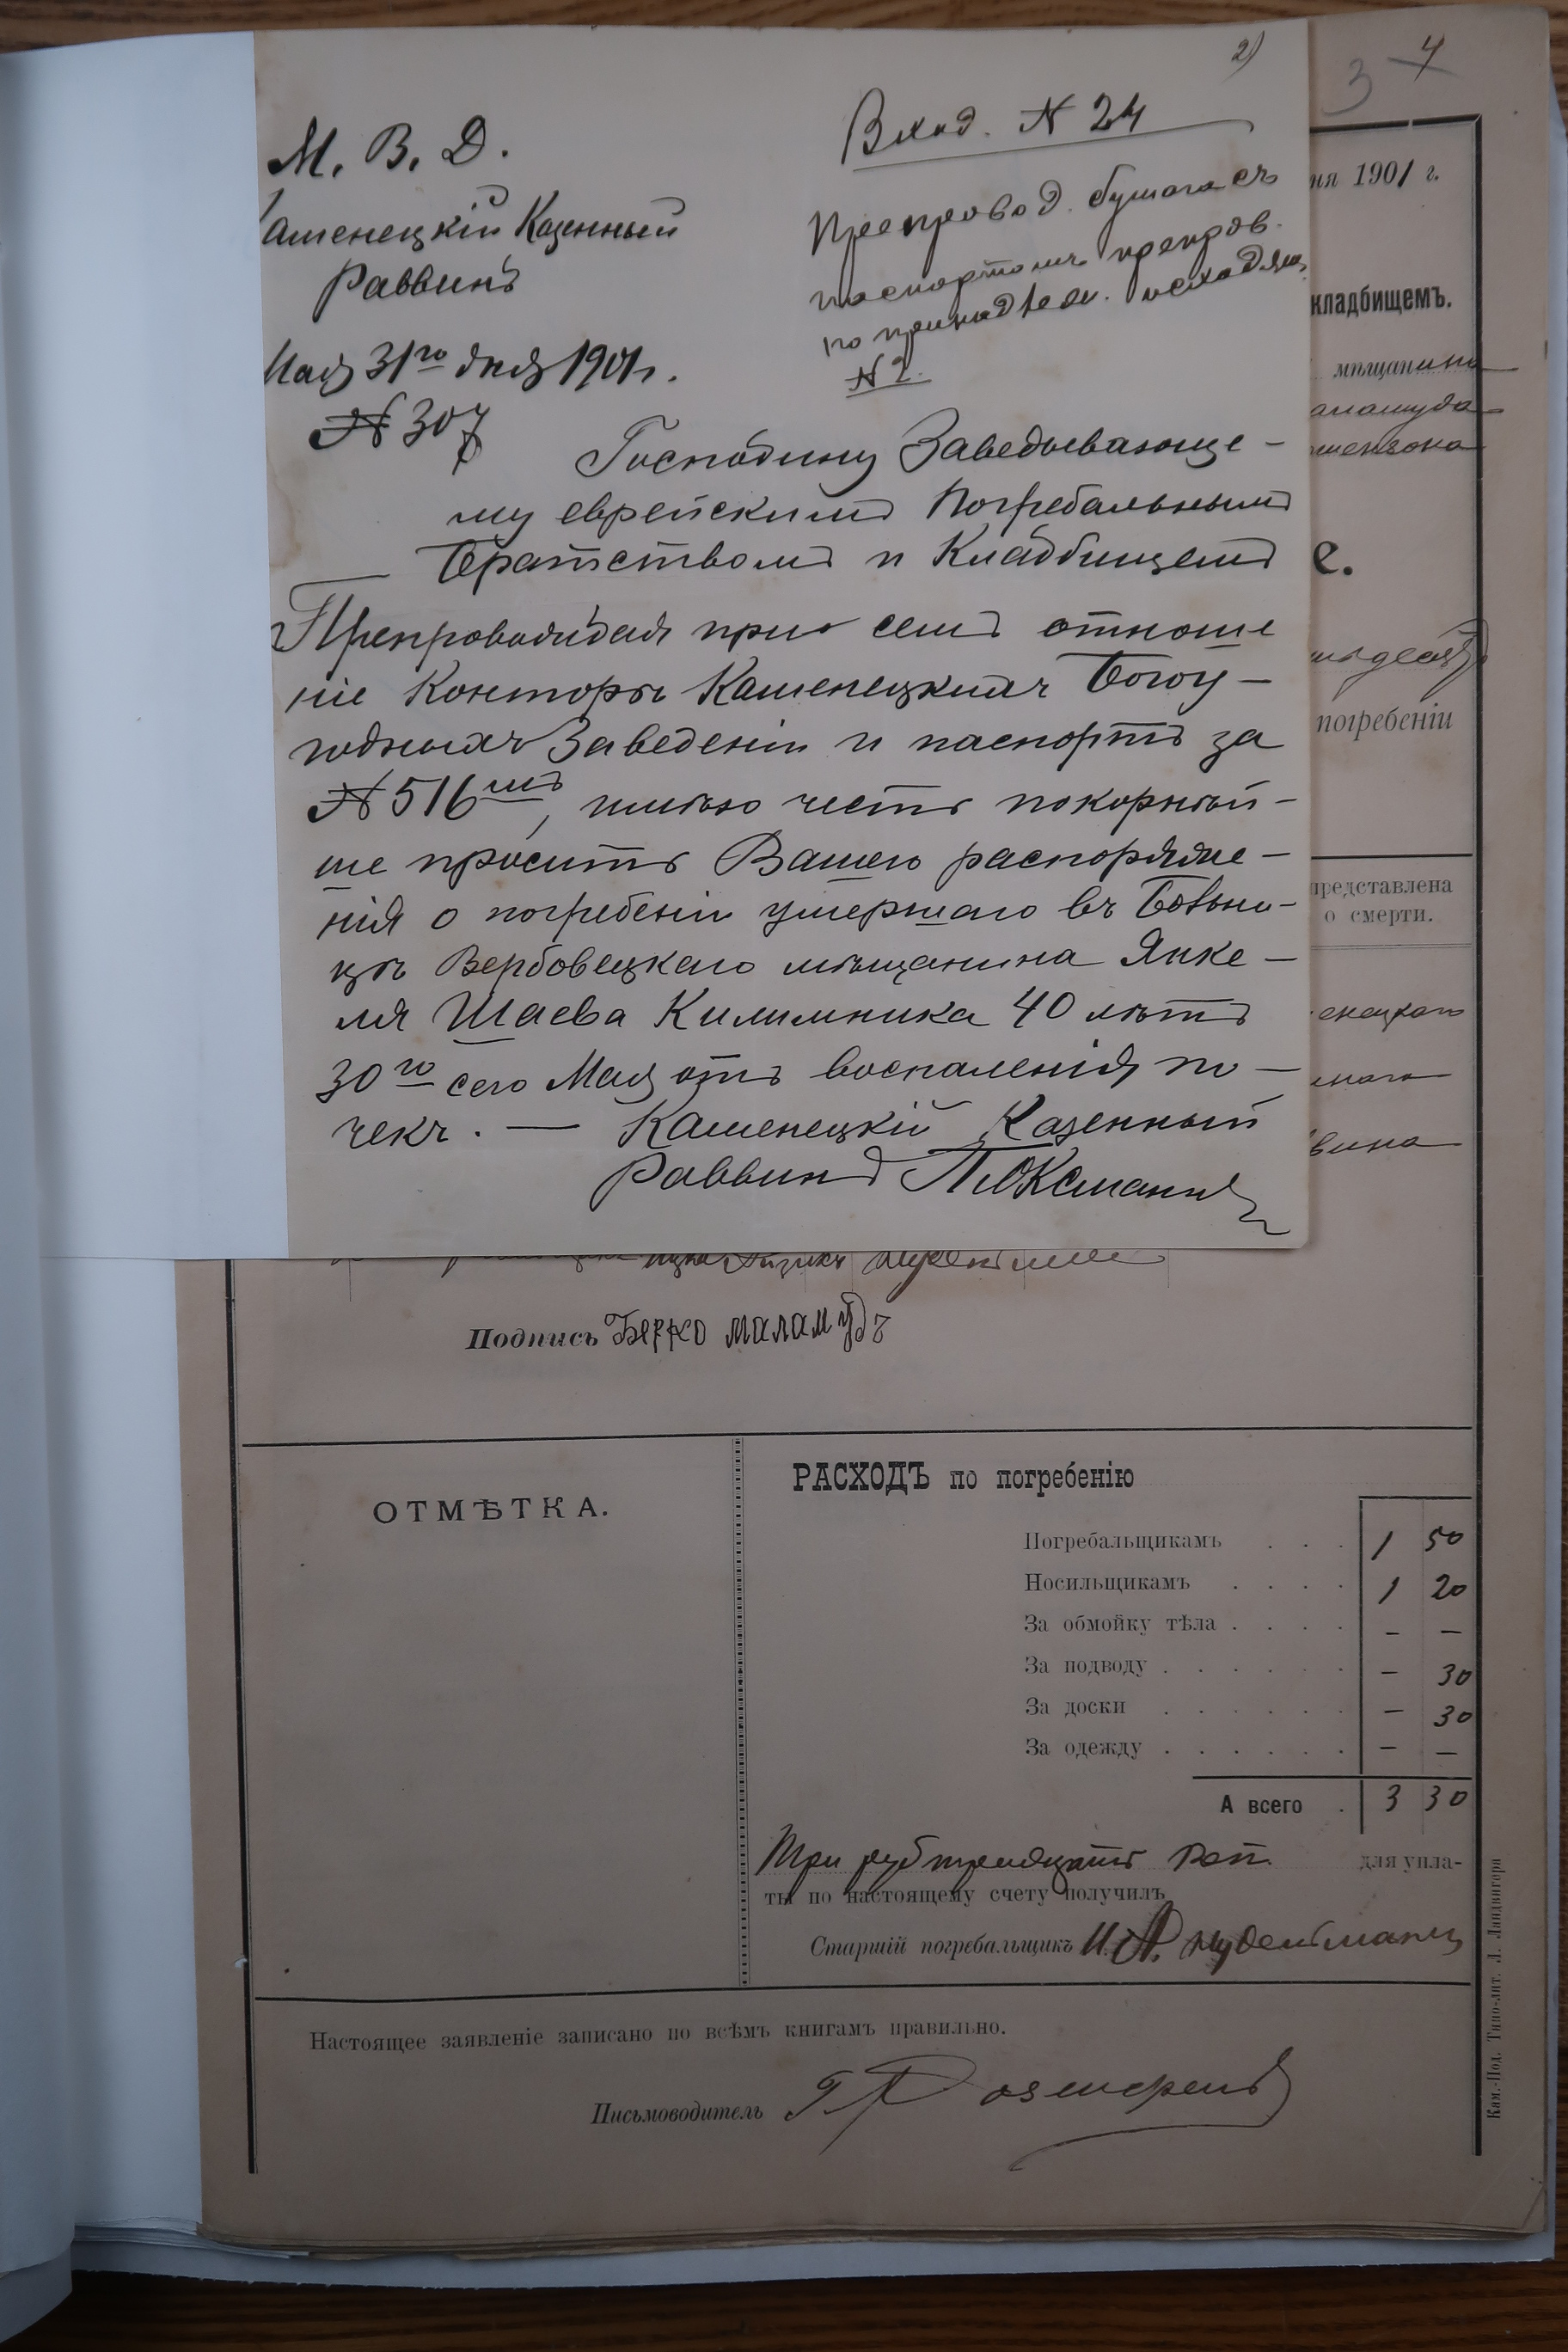 2)
М. В. Д.
Каменецкій Казенный
Раввинъ
Мая 31го дня 1901 г.
№ 307
Вход. № 24
Препровод. бумага съ
паспортомъ препров.
по принадлеж. исходящ.
№ 2.
Господину Заведывающе-
му еврейскимъ Погребальнымъ
Братствомъ и Кладбищемъ
Препровождая при семъ отноше
ніе Конторы Каменецкихъ Богоу-
годныхъ Заведеніи и паспортъ за
№ 516мъ, имѣю честь покорнѣй-
ше просить Вашего распоряже-
нія о погребеніи умершаго въ Больни-
цѣ Вербовецкаго мѣщанина Янке-
ля Шаева Килимника 40 лѣтъ
30го сего Мая отъ воспаленія по-
чекъ. — Каменецкій Казенный
Раввинъ
3 4
ня 1901 г.
кладбищемъ.
мѣщанина
е.
погребеніи
представлена
о смерти.
енецкаго
вина
Подпись Берко маламудъ
ОТМѢТКА.
РАСХОДЪ по погребенію
Погребальщикамъ . . . 1 50
Носильщикамъ . . . . 1 20
За обмойку тѣла . . . . – –
За подводу . . . . . . – 30
За доски . . . . . . – 30
За одежду . . . . . . – –
А всего . 3 30
Три руб тридцать коп. для упла-
ты по настоящему счету получилъ
Старшій погребальщикъ И. А. Нудельманъ
Настоящее заявленіе записано по всѣмъ книгамъ правильно.
Письмоводитель
Кам.-Под. Типо-лит. Л. Ландвигера